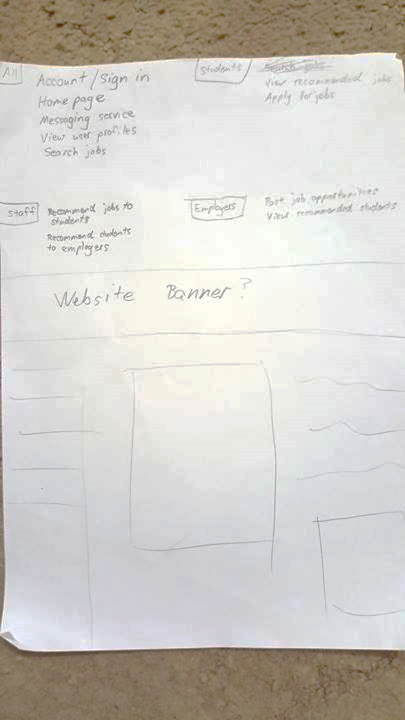 All
Account/Sign in
Home page
Messaging service
View user profiles
Search jobs
Students
View recommended jobs
Apply for jobs
Staff
Recommend jobs to
students
Recommend students
to employers
Employers
Post job opportunities
View recommended students
Website Banner?